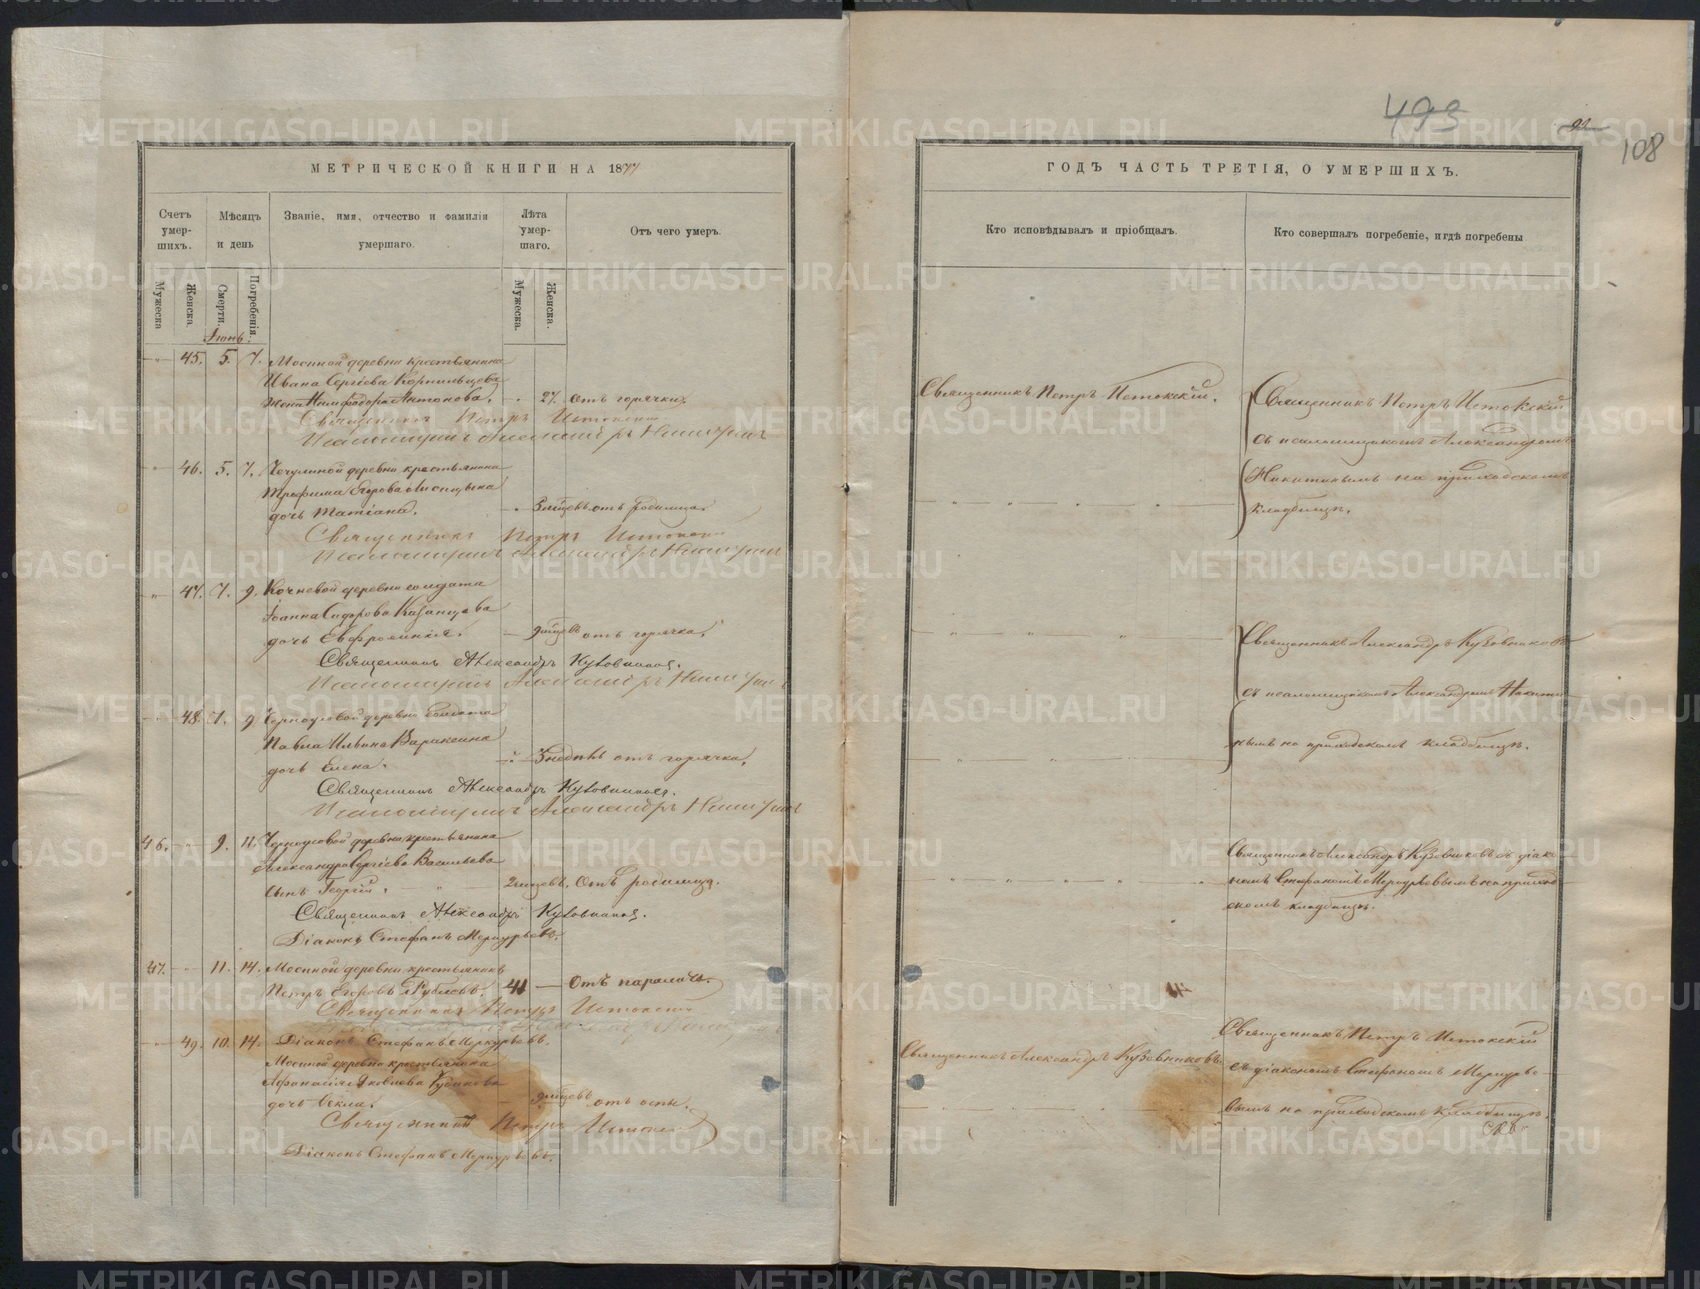 МЕТРИЧЕСКОЙ КНИГИ НА 1877
Счетъ умер-шихъ.
Мѣсяцъ и день
Званіе, имя, отчество и фамилія умершаго.
Лѣта умер-шаго.
Отъ чего умеръ.
Мужеска
Женска.
Смерти.
Погребенія.
Мужеска.
Женска.
Іюнь.
45. 5. 7. Мосиной деревни крестьянина
Ивана Сергіева Корнильцева
жена Нимфадора Антонова. 27. отъ горячки.
Священникъ Петръ Истокскій
Псаломщикъ Александръ Никитинъ
46. 5. 7. Чечулиной деревни крестьянина
Трофима Егорова Лисицына
дочь Татіана. 3 мѣсцевъ отъ родимца.
Священникъ Петръ Истокскій
Псаломщикъ Александръ Никитинъ
47. 7. 9. Кочневой деревни солдата
Іоанна Сидорова Казанцева
дочь Евфросинія. 9 мѣсцевъ отъ горячки.
Священникъ Александръ Кузовниковъ.
Псаломщикъ Александръ Никитинъ
48. 7. 9 Черноусовой деревни солдата
Павла Ильина Вараксина
дочь Елена. 3 недѣль отъ горячки.
Священникъ Александръ Кузовниковъ.
Псаломщикъ Александръ Никитинъ
46. 9. 11. Черноусовой деревни крестьянина
Александра Сергіева Васильева
сынъ Георгій. 2 мѣсцевъ. Отъ родимца.
Священникъ Александръ Кузовниковъ.
Діаконъ Стефанъ Меркурьевъ.
47. 11. 14. Мосиной деревни крестьянинъ
Петръ Егоровъ Рублевъ. 41 Отъ паралича.
Священникъ Петръ Истокскій
49. 10. 14. Діаконъ Стефанъ Меркурьевъ.
Мосиной деревни крестьянина
Афанасія Яковлева
дочь Текла. 9 мѣсцевъ отъ оспы.
Священникъ Петръ Истокскій
Діаконъ Стефанъ Меркурьевъ.
493
92
108
ГОДЪ ЧАСТЬ ТРЕТІЯ, О УМЕРШИХЪ.
Кто исповѣдывалъ и пріобщалъ.
Кто совершалъ погребеніе, и гдѣ погребены
Священникъ Петръ Истокскій.
Священникъ Петръ Истокскій
съ псаломщикомъ Александромъ
Никитинымъ на приходскомъ
кладбищѣ.
Священникъ Александръ Кузовниковъ
съ псаломщикомъ Александромъ Никити-
нымъ на приходскомъ кладбищѣ.
Священникъ Александръ Кузовниковъ съ діако-
номъ Стефаномъ Меркурьевымъ на приход-
скомъ кладбищѣ.
Священникъ Александръ Кузовниковъ.
Священникъ Петръ Истокскій
съ діакономъ Стефаномъ Меркурье-
вымъ на приходскомъ кладбищѣ.
METRIKI.GASO-URAL.RU